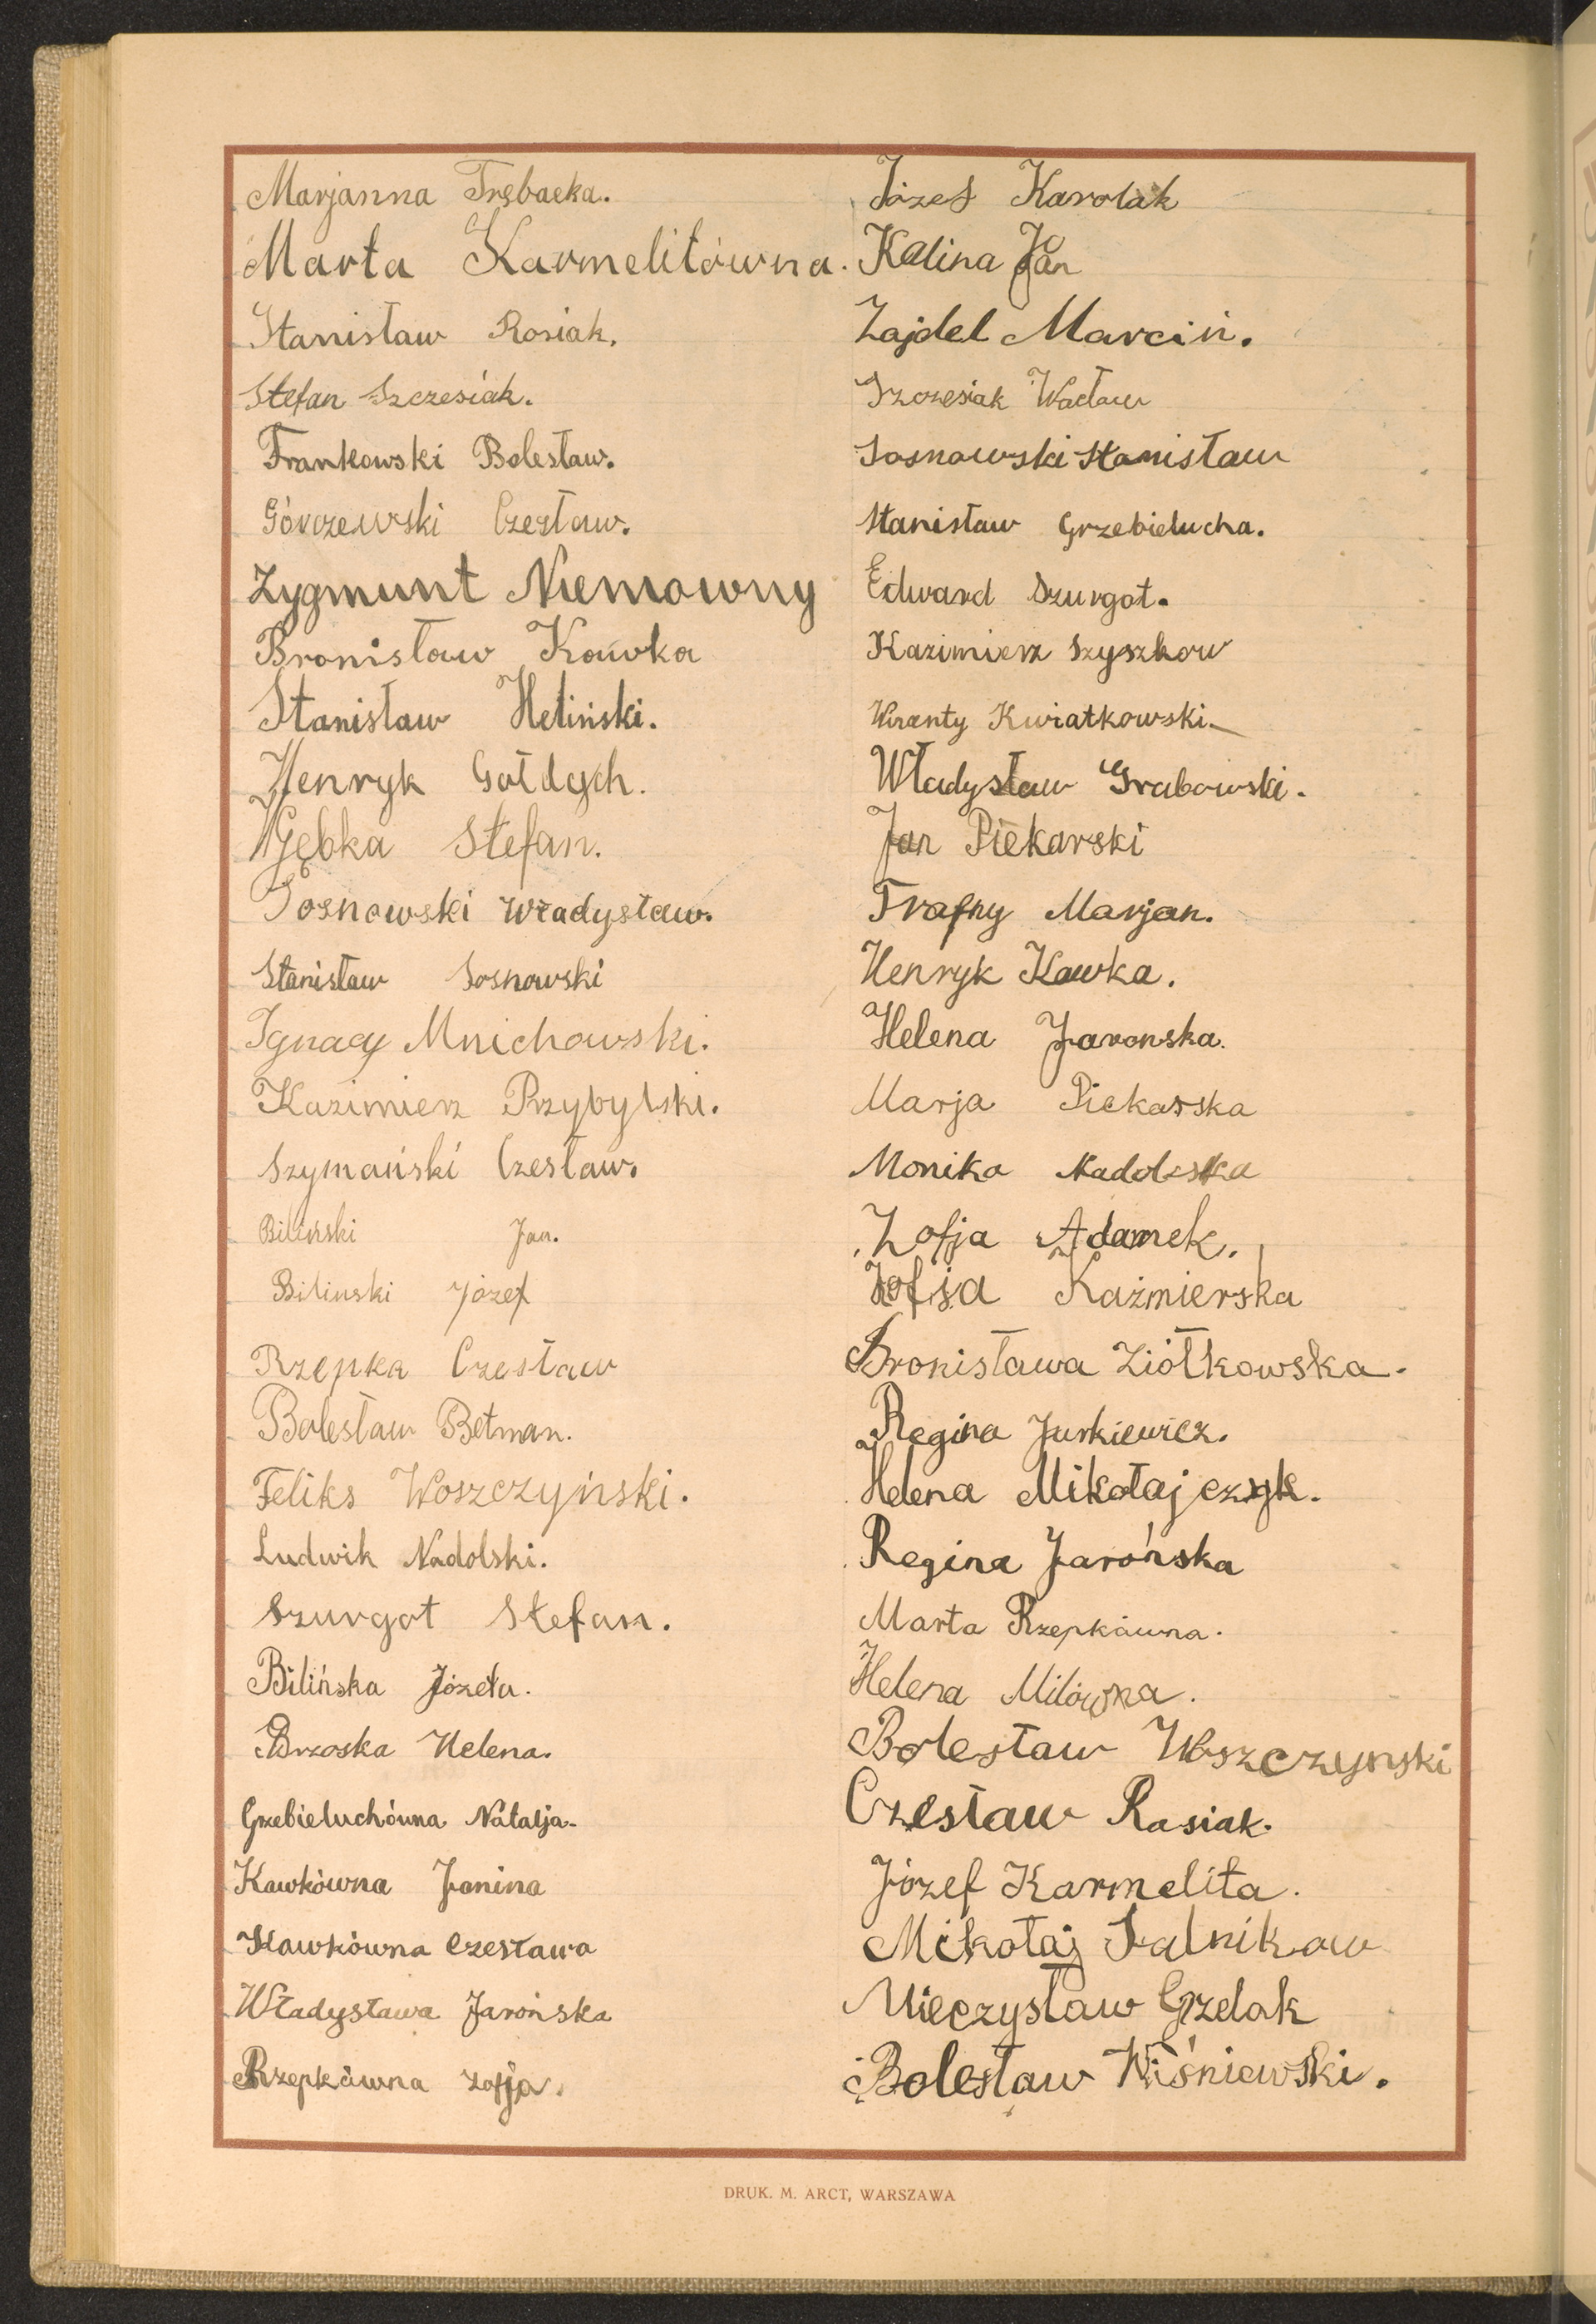 Marjanna Trębacka.
Marta Karmelitówna.
Stanisław Rosiak.
Stefan Szczesiak.
Frankowski Bolesław.
Górczewski Czesław.
Zygmunt Niemowny
Bronisław Kawka
Stanisław Heliński.
Henryk Gołdych.
Gębka Stefan.
Sosnowski Władysław.
Stanisław Sosnowski
Ignacy Mnichowski.
Kazimierz Przybylski.
Szymański Czesław.
Biliński Jan.
Bilinski Józef
Rzepka Czesław
Bolesław Betman.
Feliks Woszczyński.
Ludwik Nadolski.
Szurgot Stefan.
Bilińska Józefa.
Brzoska Helena.
Grzebieluchówna Natalja.
Kawkówna Janina
Kawkówna Czesława
Władysława Jarońska
Rzepkówna Zofja.
Józef Karolak
Kalina Jan
Zajdel Marcin.
Szczesiak Wacław
Sosnowski Stanisław
Stanisław Grzebielucha.
Edward Szurgot.
Kazimierz Szyszkow
Kwiatkowski
Władysław Grabowski.
Jan Piekarski
Trafny Marjan.
Henryk Kawka.
Helena Jaronska.
Marja Piekarska
Monika Nadolska
Zofja Adamek.
Zofja Kaźmierska
Bronisława Ziółkowska.
Regina Jurkiewicz.
Helena Mikołajczyk.
Regina Jarońska
Marta Rzepkówna.
Helena Milówna.
Bolesław Woszczynski
Czesław Rasiak.
Józef Karmelita.
Mikołaj Salnikow
Mieczysław Grzelak
Bolesław Wiśniewski.
DRUK. M. ARCT, WARSZAWA